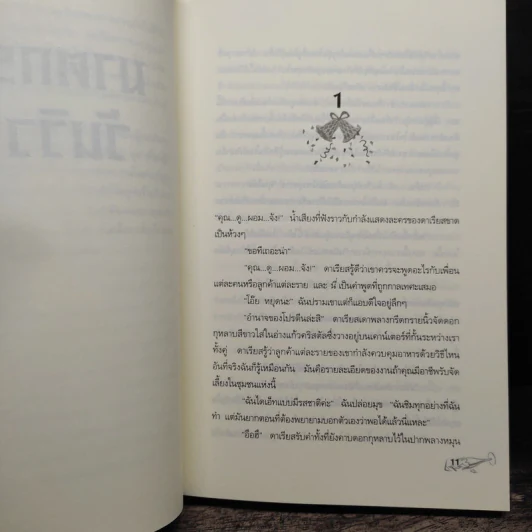 1
"คุณ...ดู...ผอม...จัง!" น้ำเสียงที่ฟังราวกับกำลังแสดงละครของดาเรียสขาด
เป็นห้วงๆ
"ขอทีเถอะน่า"
"คุณ...ดู...ผอม...จัง!" ดาเรียสรู้ดีว่าเขาควรจะพูดอะไรกับเพื่อน
แต่ละคนหรือลูกค้าแต่ละราย และ นี่ เป็นคำพูดที่ถูกกาลเทศะเสมอ
"โอ๊ย หยุดนะ" ฉันปรามเขาแต่ก็แอบดีใจอยู่ลึกๆ
"อำนาจของโปรตีนล่ะสิ" ดาเรียสเดาพลางกรีดกรายนิ้วจัดดอก
กุหลาบสีขาวใส่ในอ่างแก้วคริสตัลซึ่งวางอยู่บนเคาน์เตอร์ที่กั้นระหว่างเรา
ทั้งคู่ ดาเรียสรู้ว่าลูกค้าแต่ละรายของเขากำลังควบคุมอาหารด้วยวิธีไหน
อันที่จริงฉันก็รู้เหมือนกัน มันคือรายละเอียดของงานถ้าคุณมีอาชีพรับจัด
เลี้ยงในชุมชนแห่งนี้
"ฉันไดเอ็ทแบบมีรสชาติค่ะ" ฉันปล่อยมุข "ฉันชิมทุกอย่างที่ฉัน
ทำ แต่มันยากตอนที่ต้องพยายามบอกตัวเองว่าพอได้แล้วนี่แหละ"
"อือฮึ" ดาเรียสรับคำทั้งที่ยังคาบดอกกุหลาบไว้ในปากพลางหมุน
11